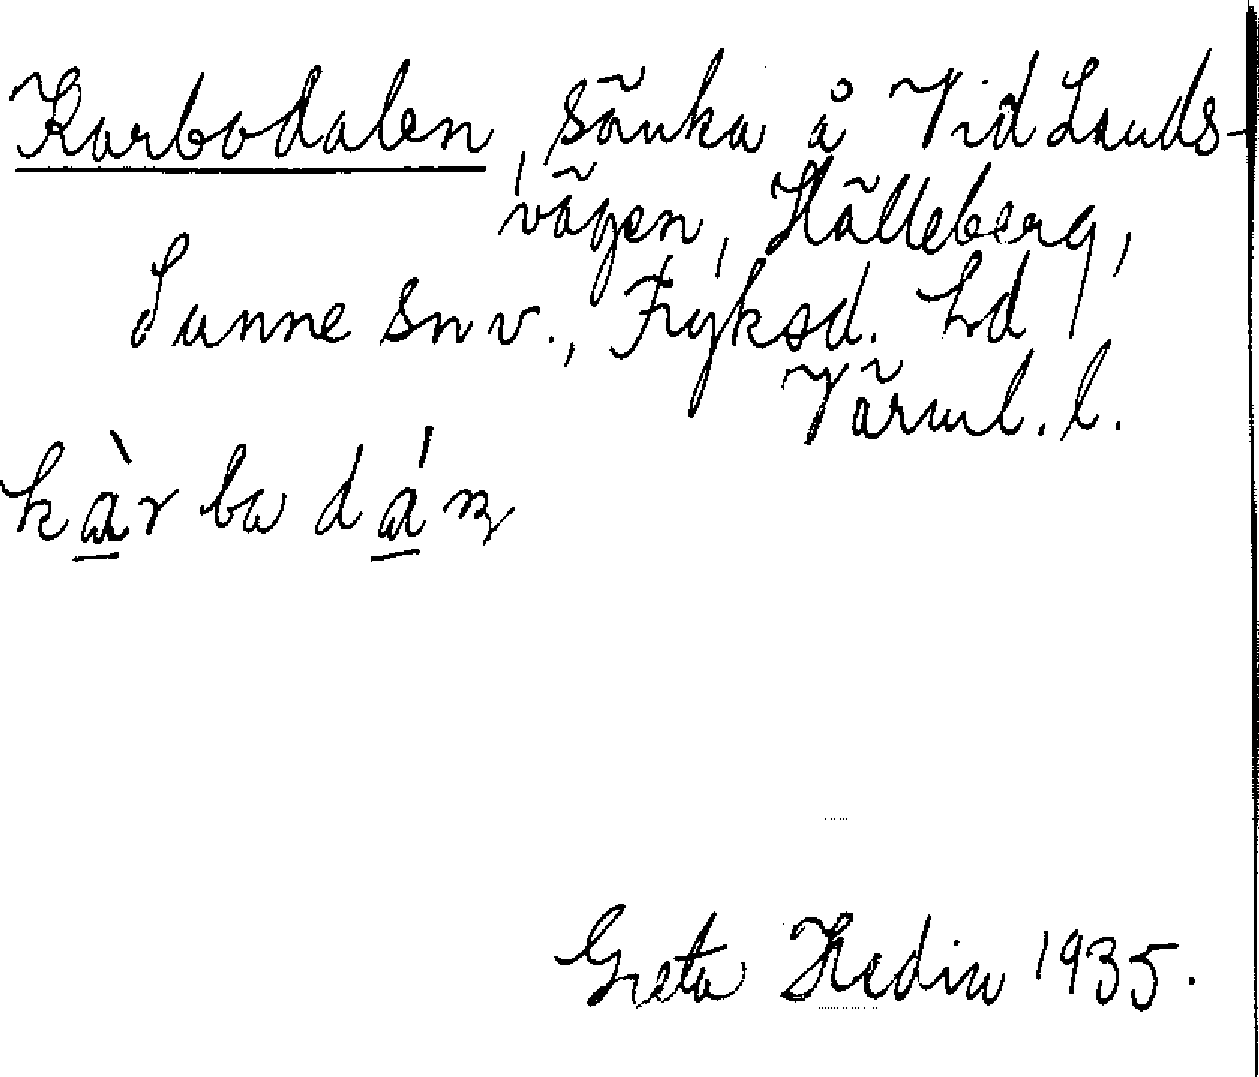 Karbodalen, sänka å Vid Lands-
vägen, Hälleberg,
Sunne snv., Fryksd. hd
Värml. l.
kàr ba dán
Greta Hedin 1935.